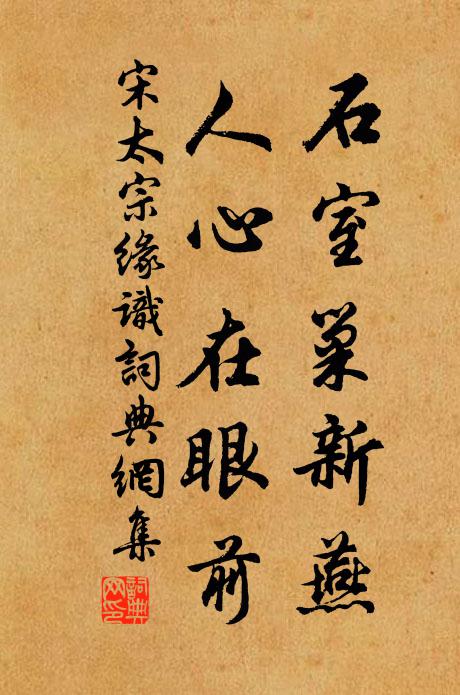 石室巢新燕
人心在眼前
宋太宗緣識詞典網集
詞典网印